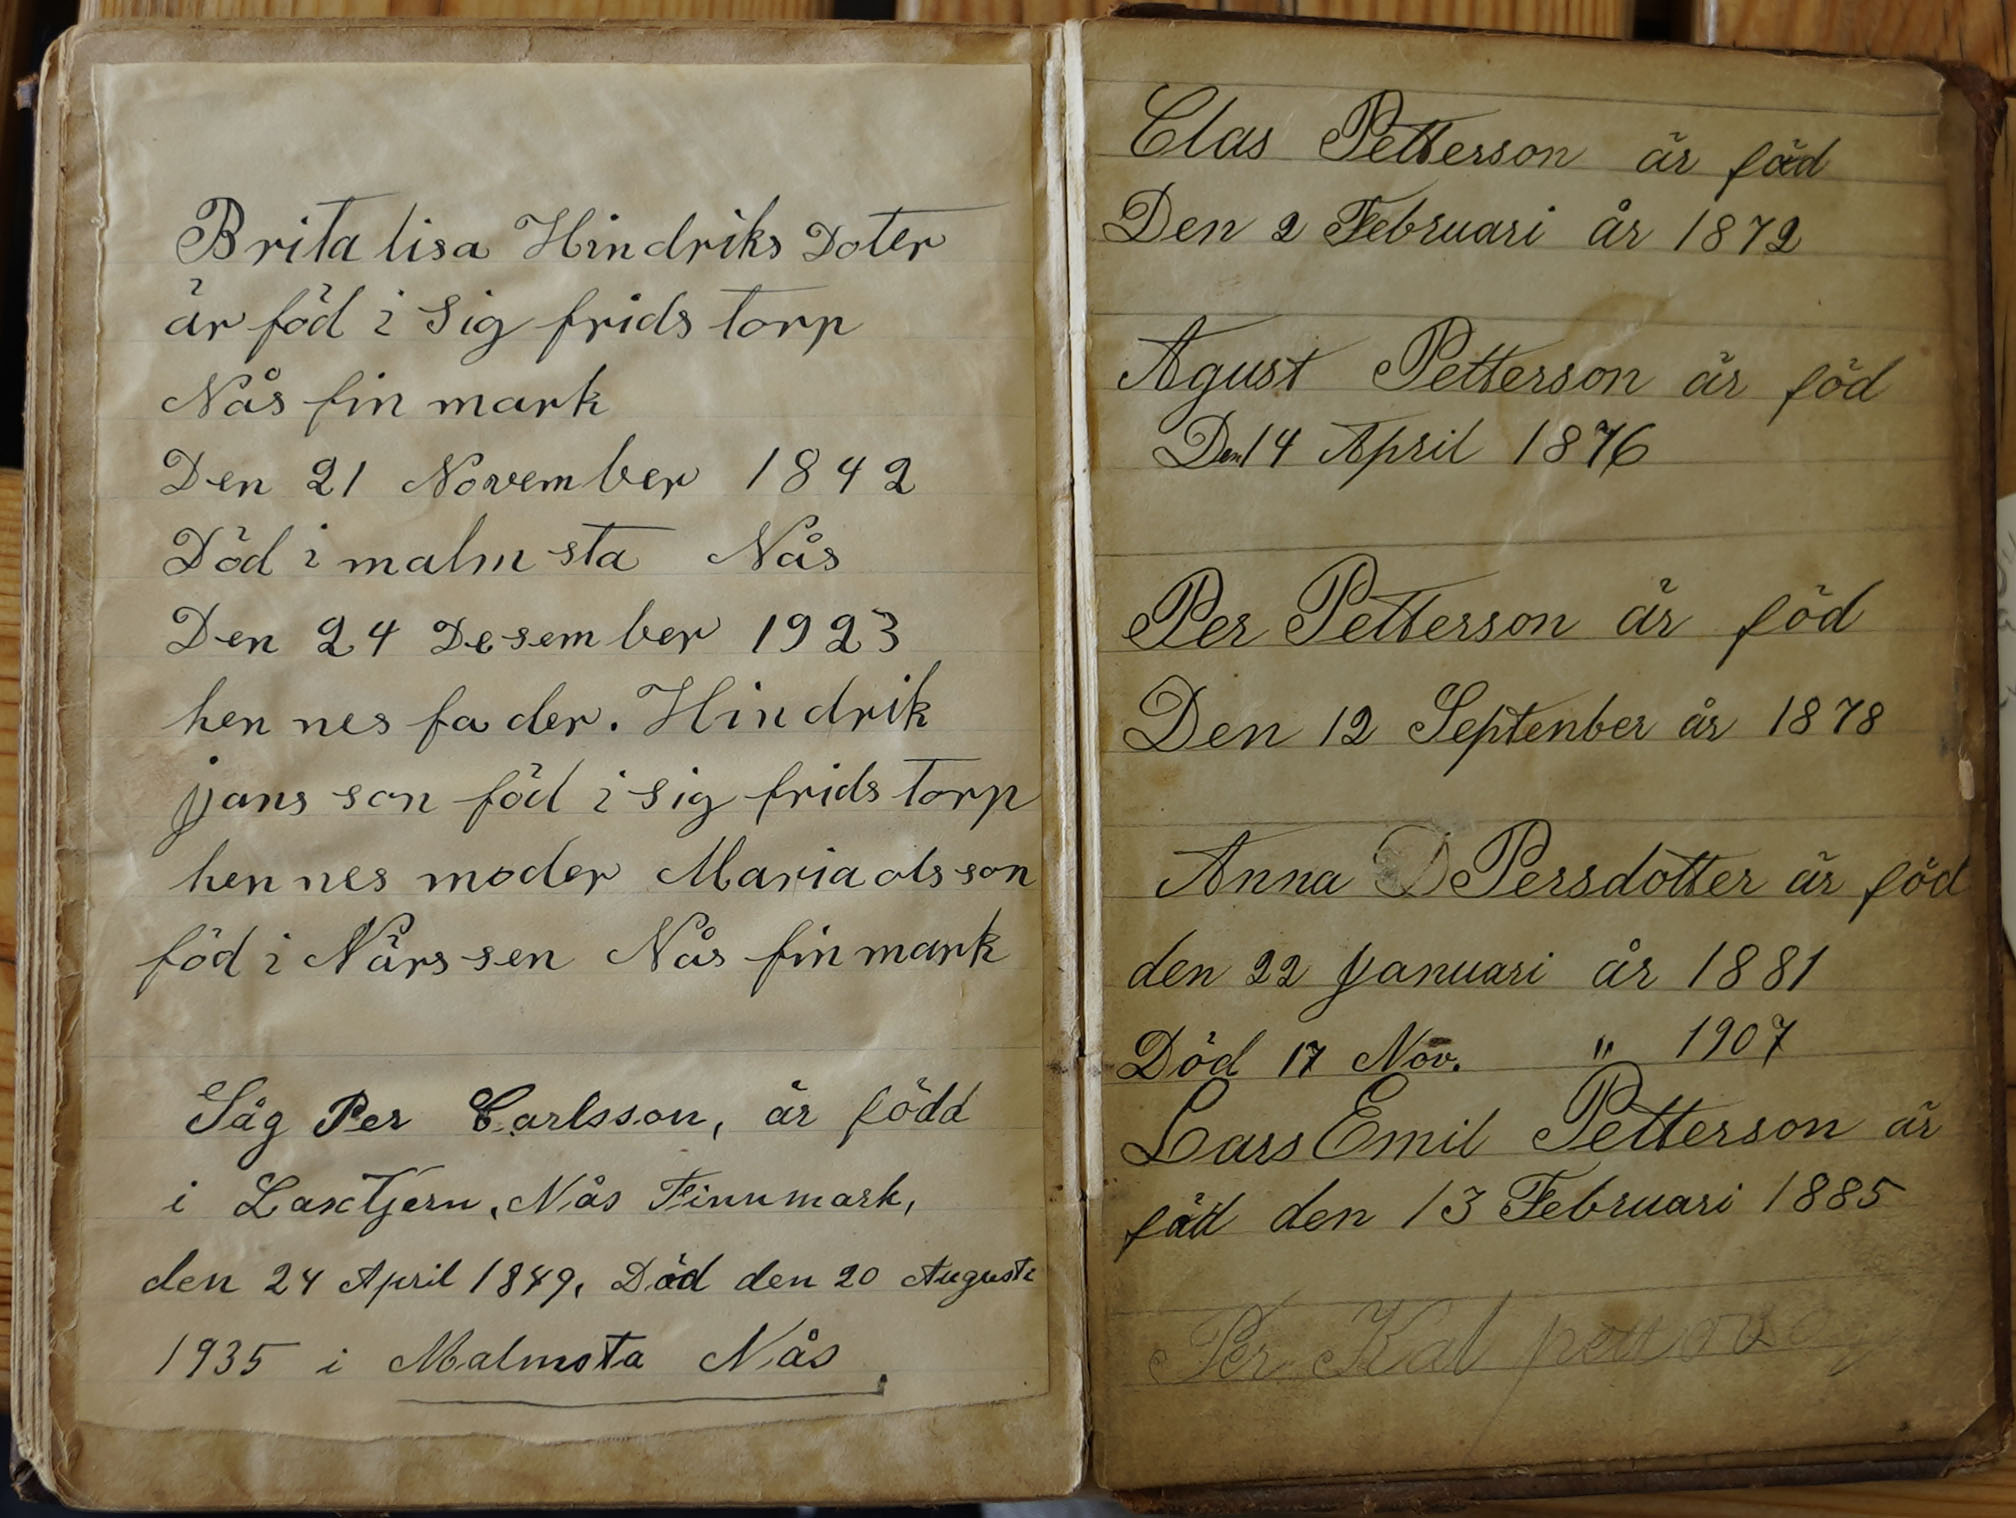 Brita lisa Hindriks Doter
är föd i Sig frids torp
Nås fin mark
Den 21 November 1842
Död i malm sta Nås
Den 24 Desember 1923
hen nes fa der. Hindrik
jans son föd i sig frids torp
hen nes moder Maria ols son
föd i Närs sen Nås fin mark
Såg Per Carlsson, är född
i Laxtjern, Nås Finnmark,
den 24 April 1849, Död den 20 Augusti
1935 i Malmsta Nås
Clas Petterson är föd
Den 2 Februari år 1872
Agust Petterson är föd
Den 14 April 1876
Per Petterson är föd
Den 12 Septenber år 1878
Anna D Persdotter är föd
den 22 Januari år 1881
Död 17 Nov. " 1907
Lars Emil Petterson är
föd den 13 Februari 1885
Per Kal